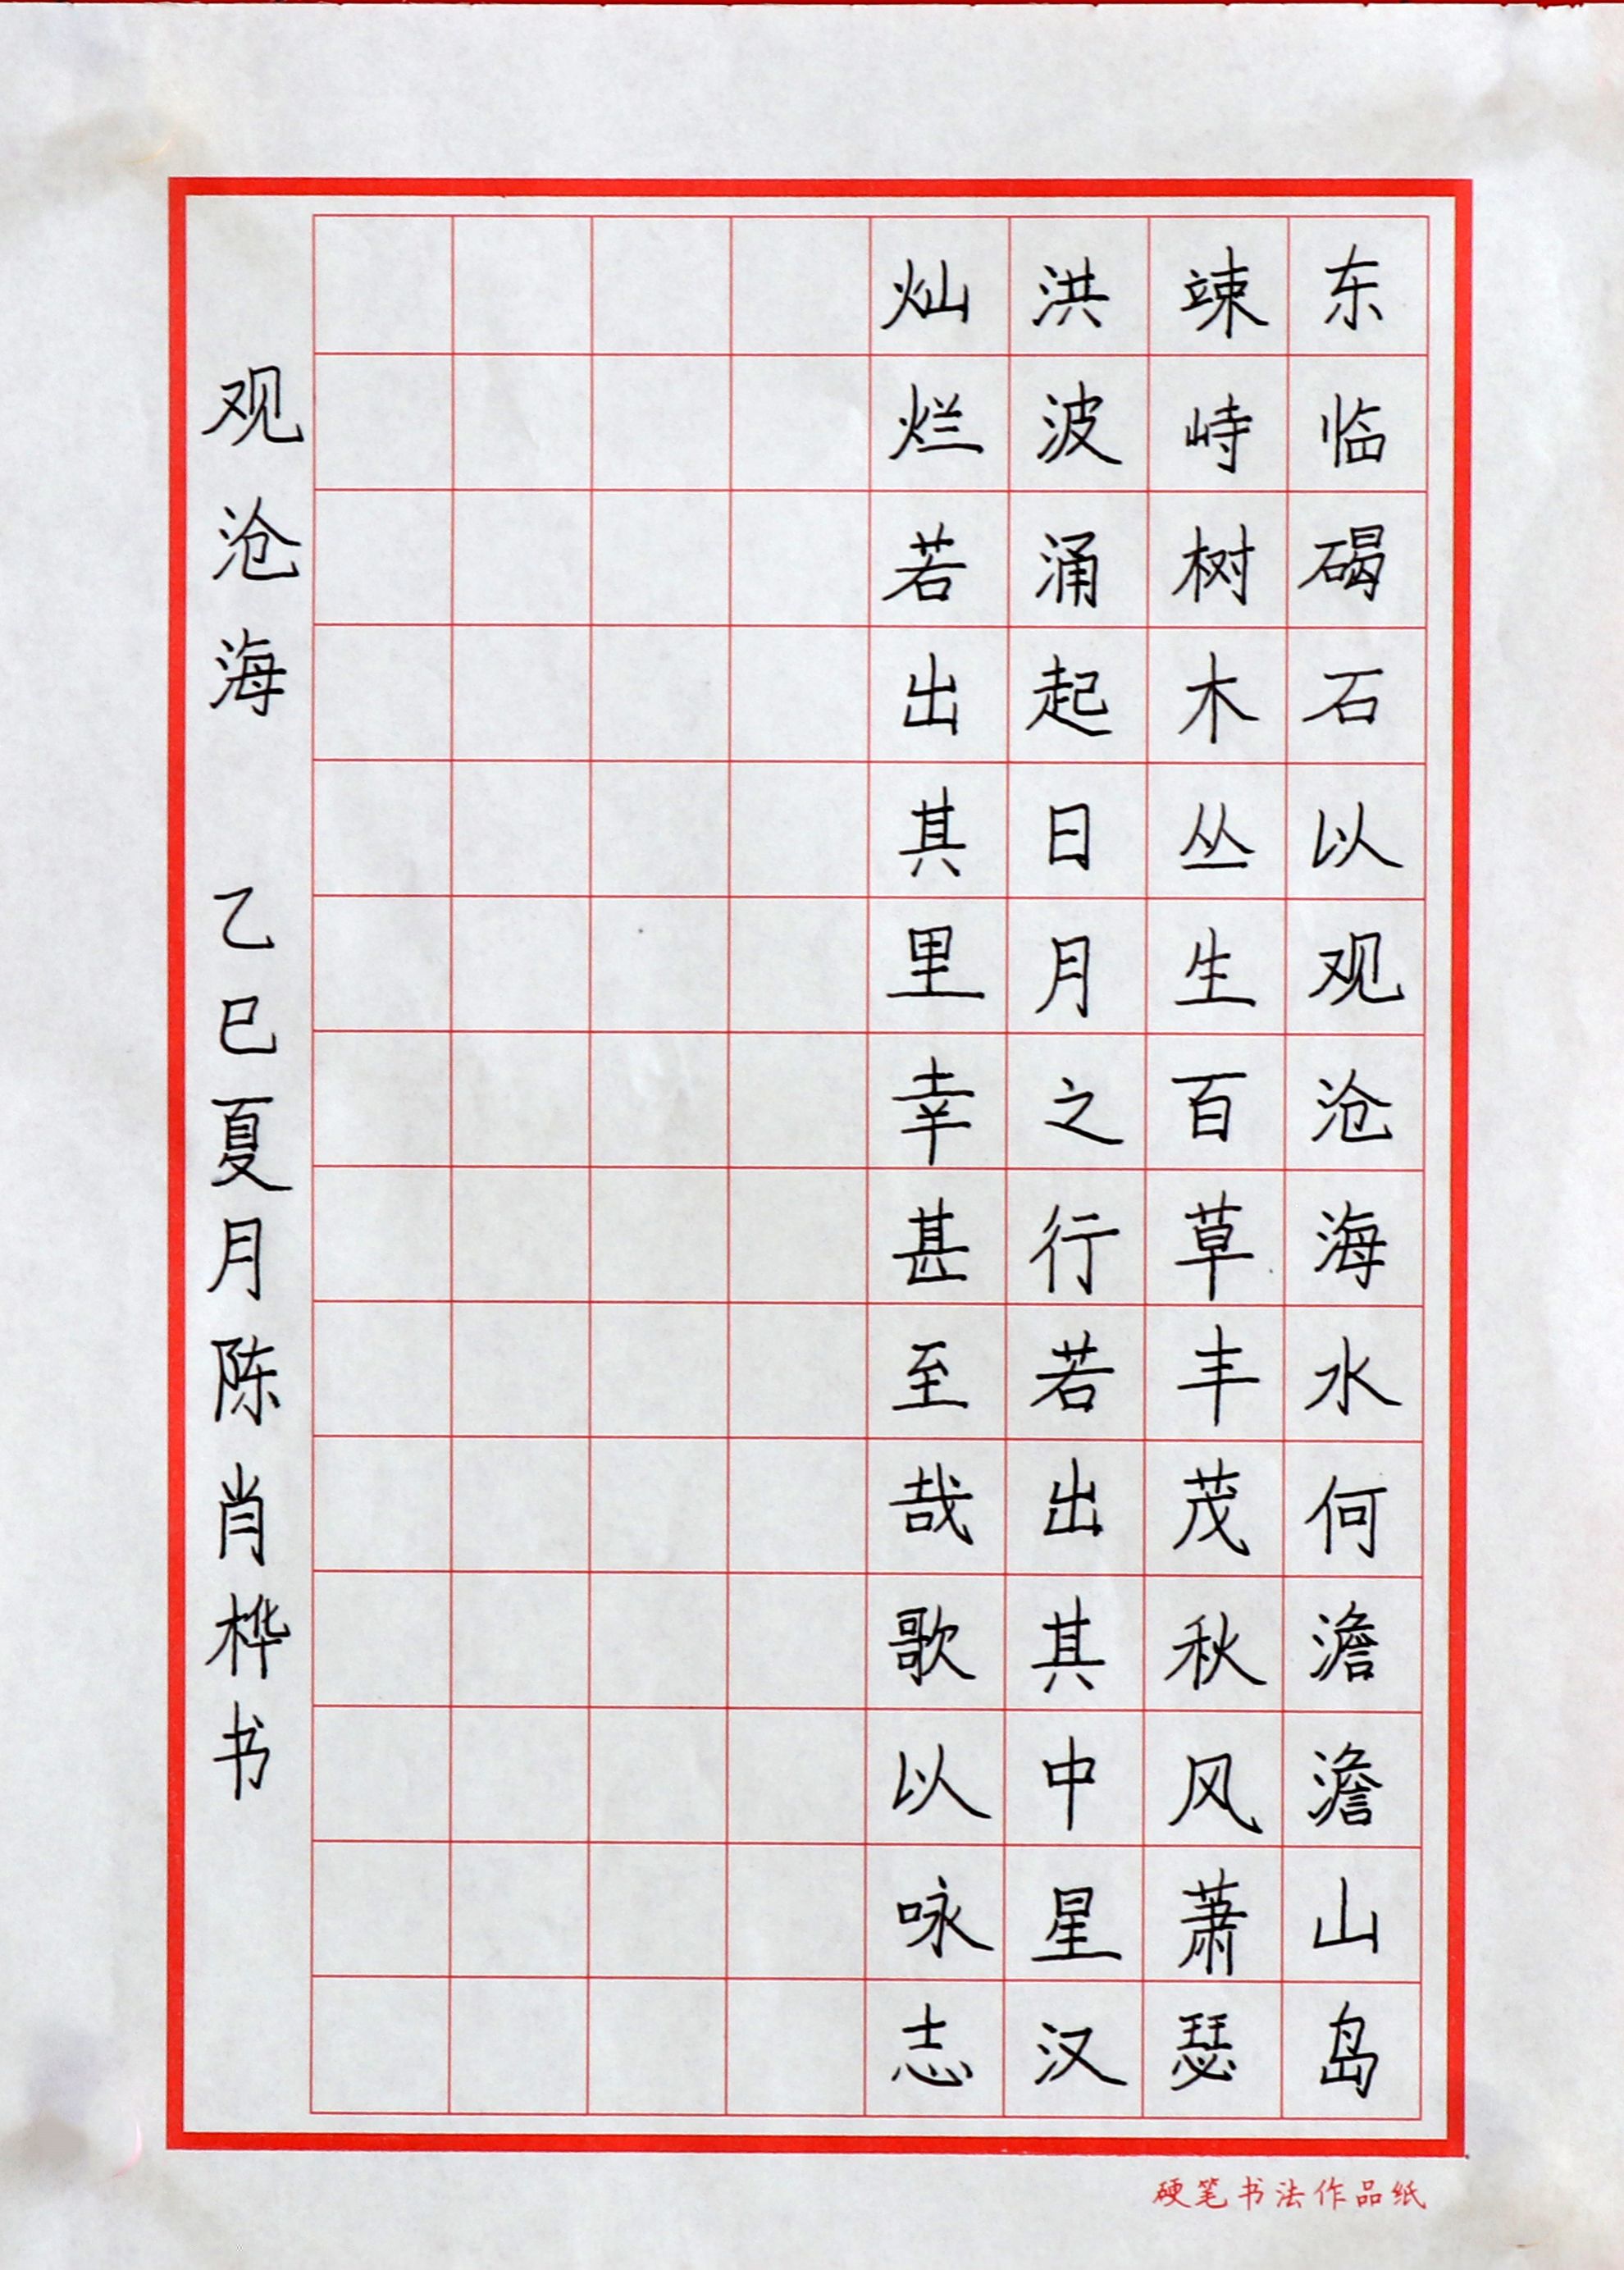 东临碣石以观沧海水何澹澹山岛
竦峙树木丛生百草丰茂秋风萧瑟
洪波涌起日月之行若出其中星汉
灿烂若出其里幸甚至哉歌以咏志
观沧海 乙巳夏月陈肖桦书
硬笔书法作品纸